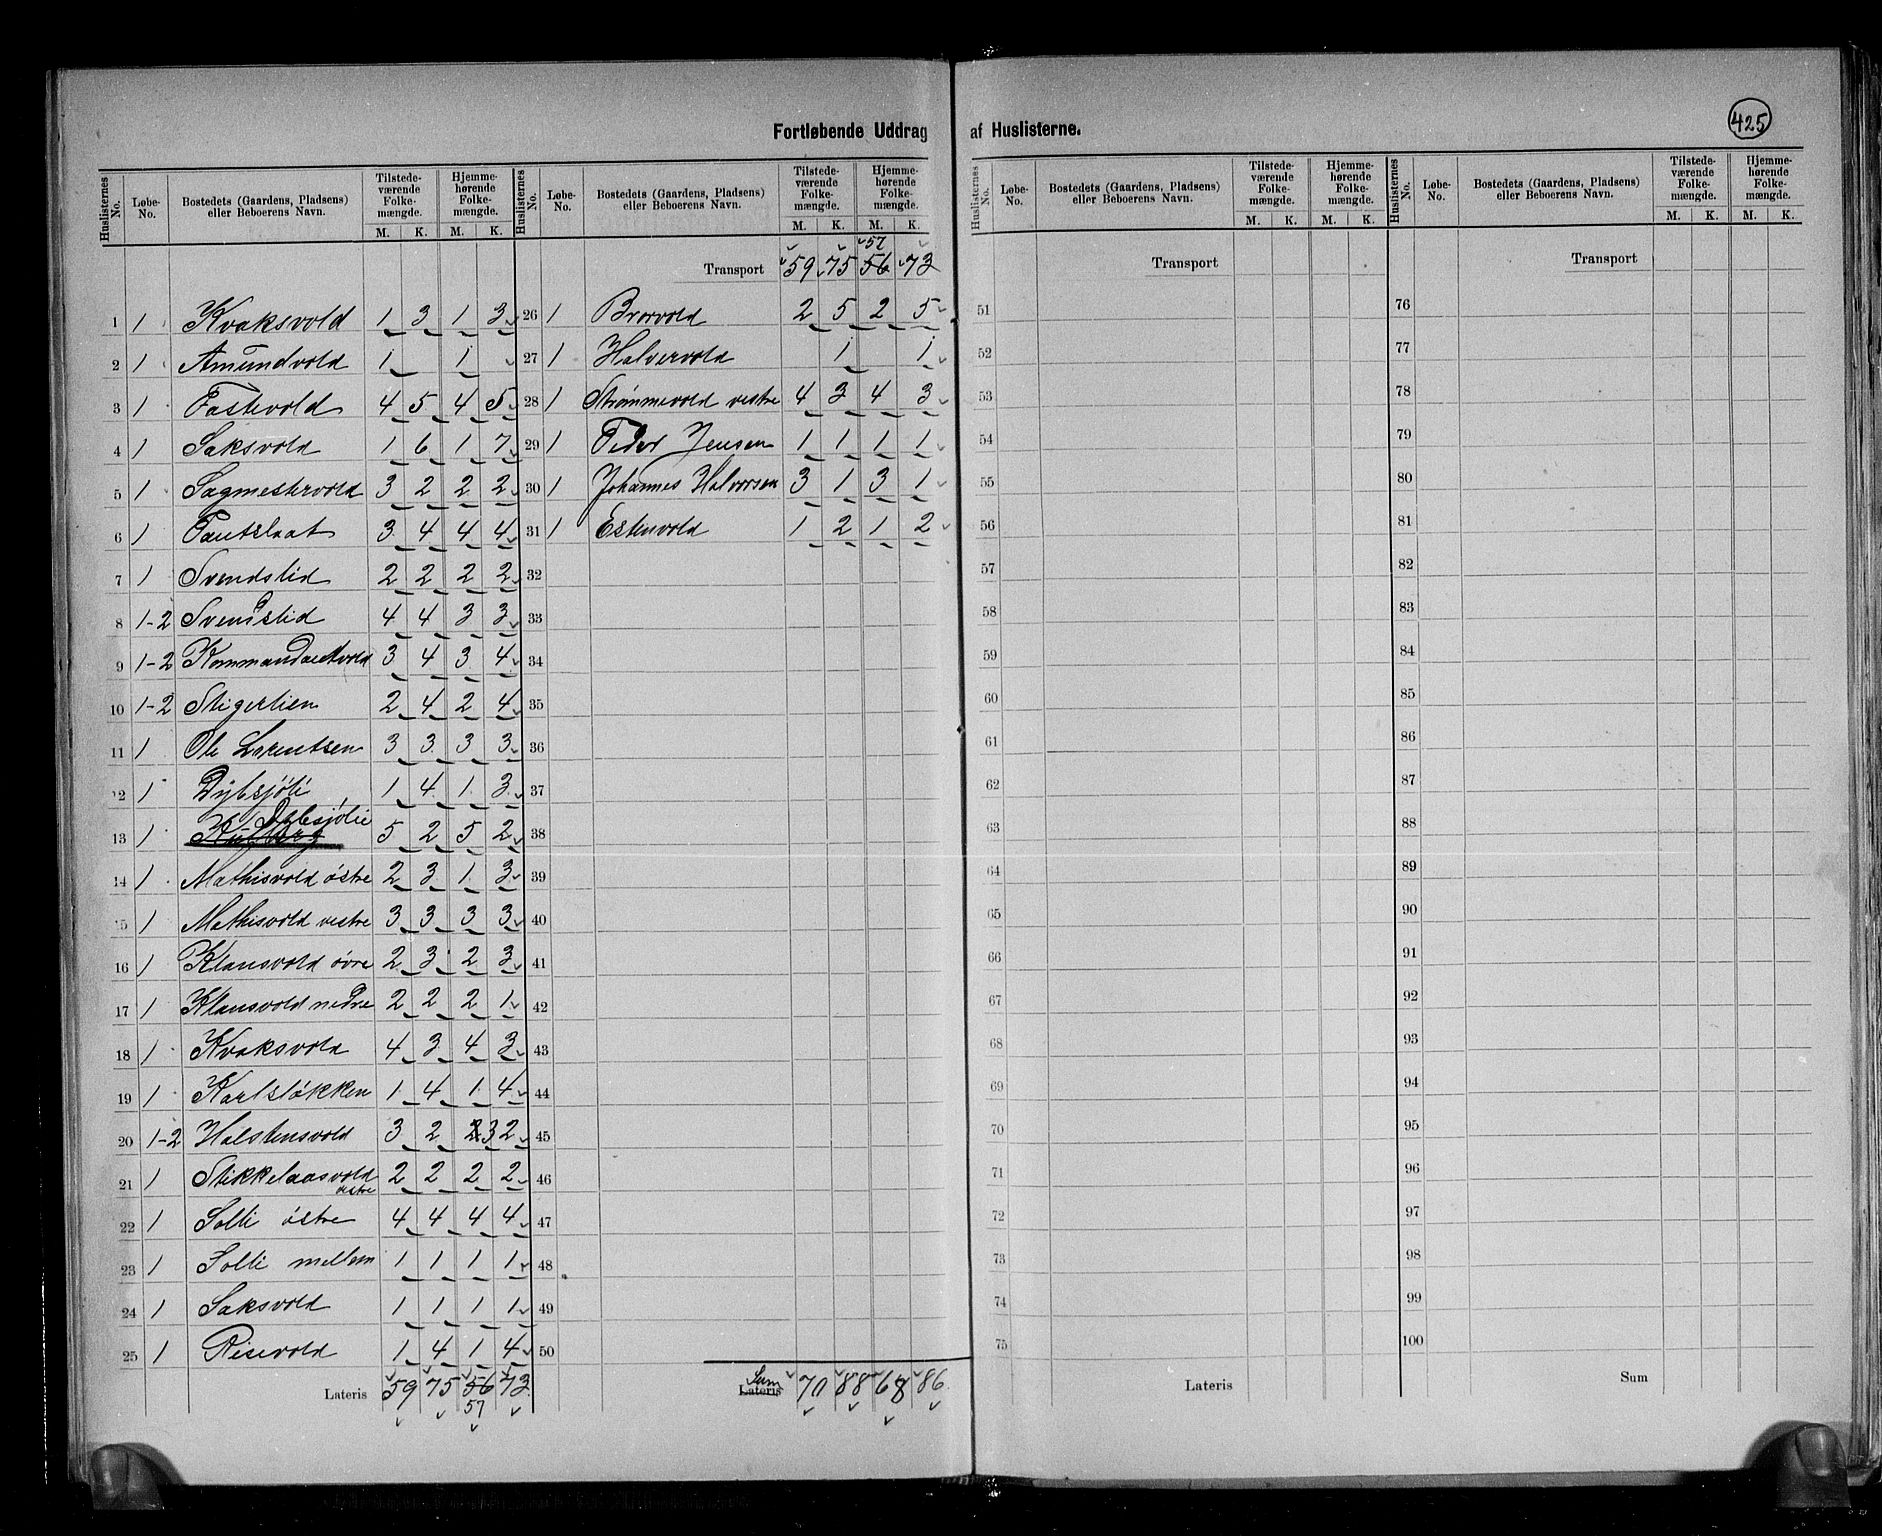 Fortløbende Uddrag af Huslisterne.
425
Huslisternes No. Løbe-No. Bostedets (Gaardens, Pladsens) eller Beboerens Navn. Tilstedeværende Folkemængde. M. K. Hjemmehørende Folkemængde. M. K.
1 1 Kvaksvold 1 3 1 3
2 1 Amundvold 1 1
3 1 Fostevold 4 5 4 5
4 1 Saksvold 1 6 1 7
5 1 Sagmestervold 3 2 2 2
6 1 3 4 4 4
7 1 Svendslid 2 2 2 2
8 1-2 Svendslid 4 4 3 3
9 1-2 Kommandantvold 3 4 3 4
10 1-2 Stigerlien 2 4 2 4
11 1 Ole Lorentsen 3 3 3 3
12 1 Dybsjöli 1 4 1 3
13 1 Dybsjölie 5 2 5 2
14 1 Mathisvold östre 2 3 1 3
15 1 Mathisvold vestre 3 3 3 3
16 1 Klausvold övre 2 3 2 3
17 1 Klausvold nedre 2 2 2 1
18 1 Kvaksvold 4 3 4 3
19 1 Karlslökken 1 4 1 4
20 1-2 Holstensvold 3 2 2 3 2
21 1 Stikkelaasvold vestre 2 2 2 2
22 1 Solli östre 4 4 4 4
23 1 Solli mellem 1 1 1 1
24 1 Saksvold 1 1 1 1
25 1 Risevold 1 4 1 4
Lateris 59 75 56 73
57
Huslisternes No. Løbe-No. Bostedets (Gaardens, Pladsens) eller Beboerens Navn. Tilstedeværende Folkemængde. M. K. Hjemmehørende Folkemængde. M. K.
57
Transport 59 75 56 73
26 1 Brorvold 2 5 2 5
27 1 Halvorvold 1 1
28 1 Strömmevold vestre 4 3 4 3
29 1 Peder Jensen 1 1 1 1
30 1 Johannes Halvorsen 3 1 3 1
31 1 Estenvold 1 2 1 2
32
33
34
35
36
37
38
39
40
41
42
43
44
45
46
47
48
49
50
Sum
Lateris 70 88 68 86
Huslisternes No. Løbe-No. Bostedets (Gaardens, Pladsens) eller Beboerens Navn. Tilstedeværende Folkemængde. M. K. Hjemmehørende Folkemængde. M. K.
Transport
51
52
53
54
55
56
57
58
59
60
61
62
63
64
65
66
67
68
69
70
71
72
73
74
75
Lateris
Huslisternes No. Løbe-No. Bostedets (Gaardens, Pladsens) eller Beboerens Navn. Tilstedeværende Folkemængde. M. K. Hjemmehørende Folkemængde. M. K.
Transport
76
77
78
79
80
81
82
83
84
85
86
87
88
89
90
91
92
93
94
95
96
97
98
99
100
Sum